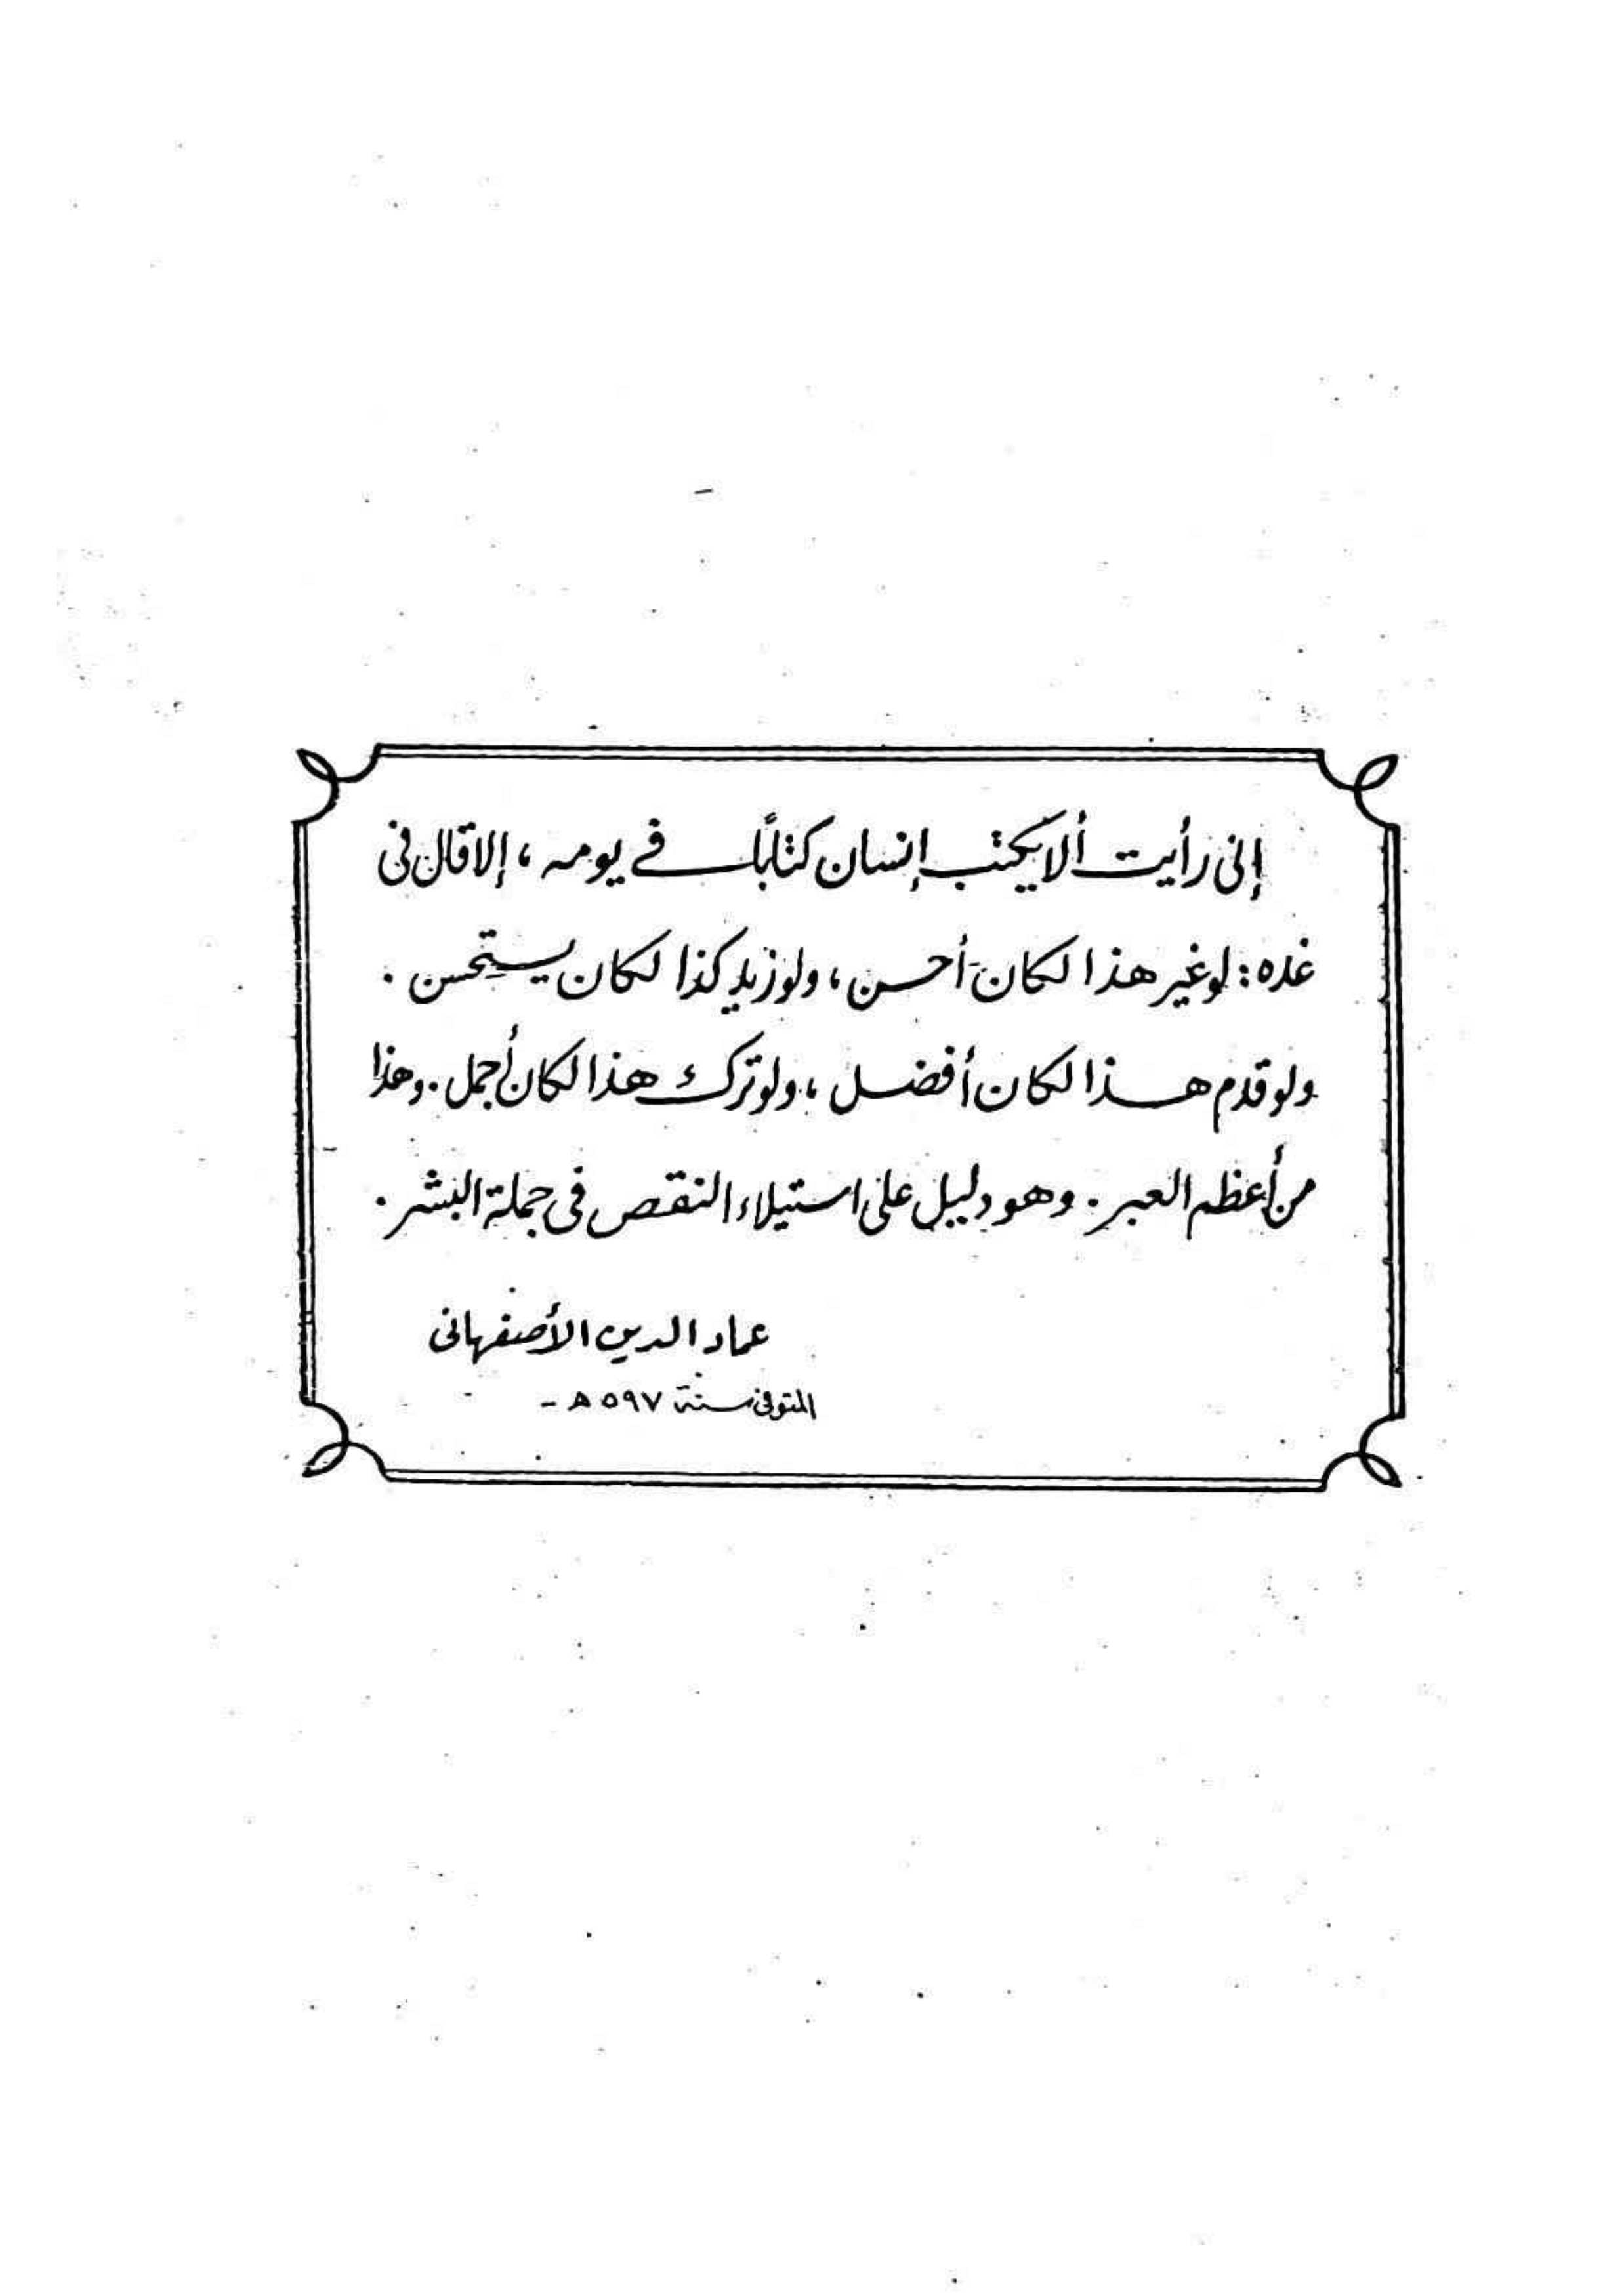 إنى رأيت ألا يكتب إنسان كتابًا فى يومه ، إلا قال فى
غده : لو غير هذا لكان أحسن ، ولو زيد كذا لكان يستحسن .
ولو قدم هذا لكان أفضل ، ولو ترك هذا لكان أجمل . وهذا
من أعظم العبر . وهو دليل على استيلاء النقص فى جملة البشر .
عماد الدين الأصفهانى
المتوفى سنة ٥٩٧ هـ -